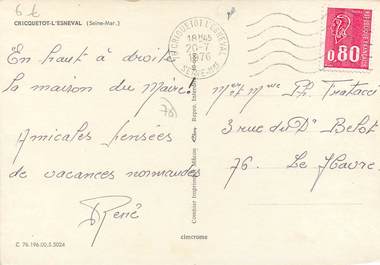 6 €
CRICQUETOT-L'ESNEVAL (Seine-Mar.)
76 CRICQUETOT L'ESNEVAL
18H45
20-7
1976
SEINE-MME
0,80
En haut à droite
la maison du Maire.
76
Amicales pensées
de vacances normandes
René
Mr et Mme Ph. Fratacci
3 rue du Dr Belot
76. Le Havre
Combier Imprimeur Mâcon
cimcrome
C. 76.196.00.5.5024